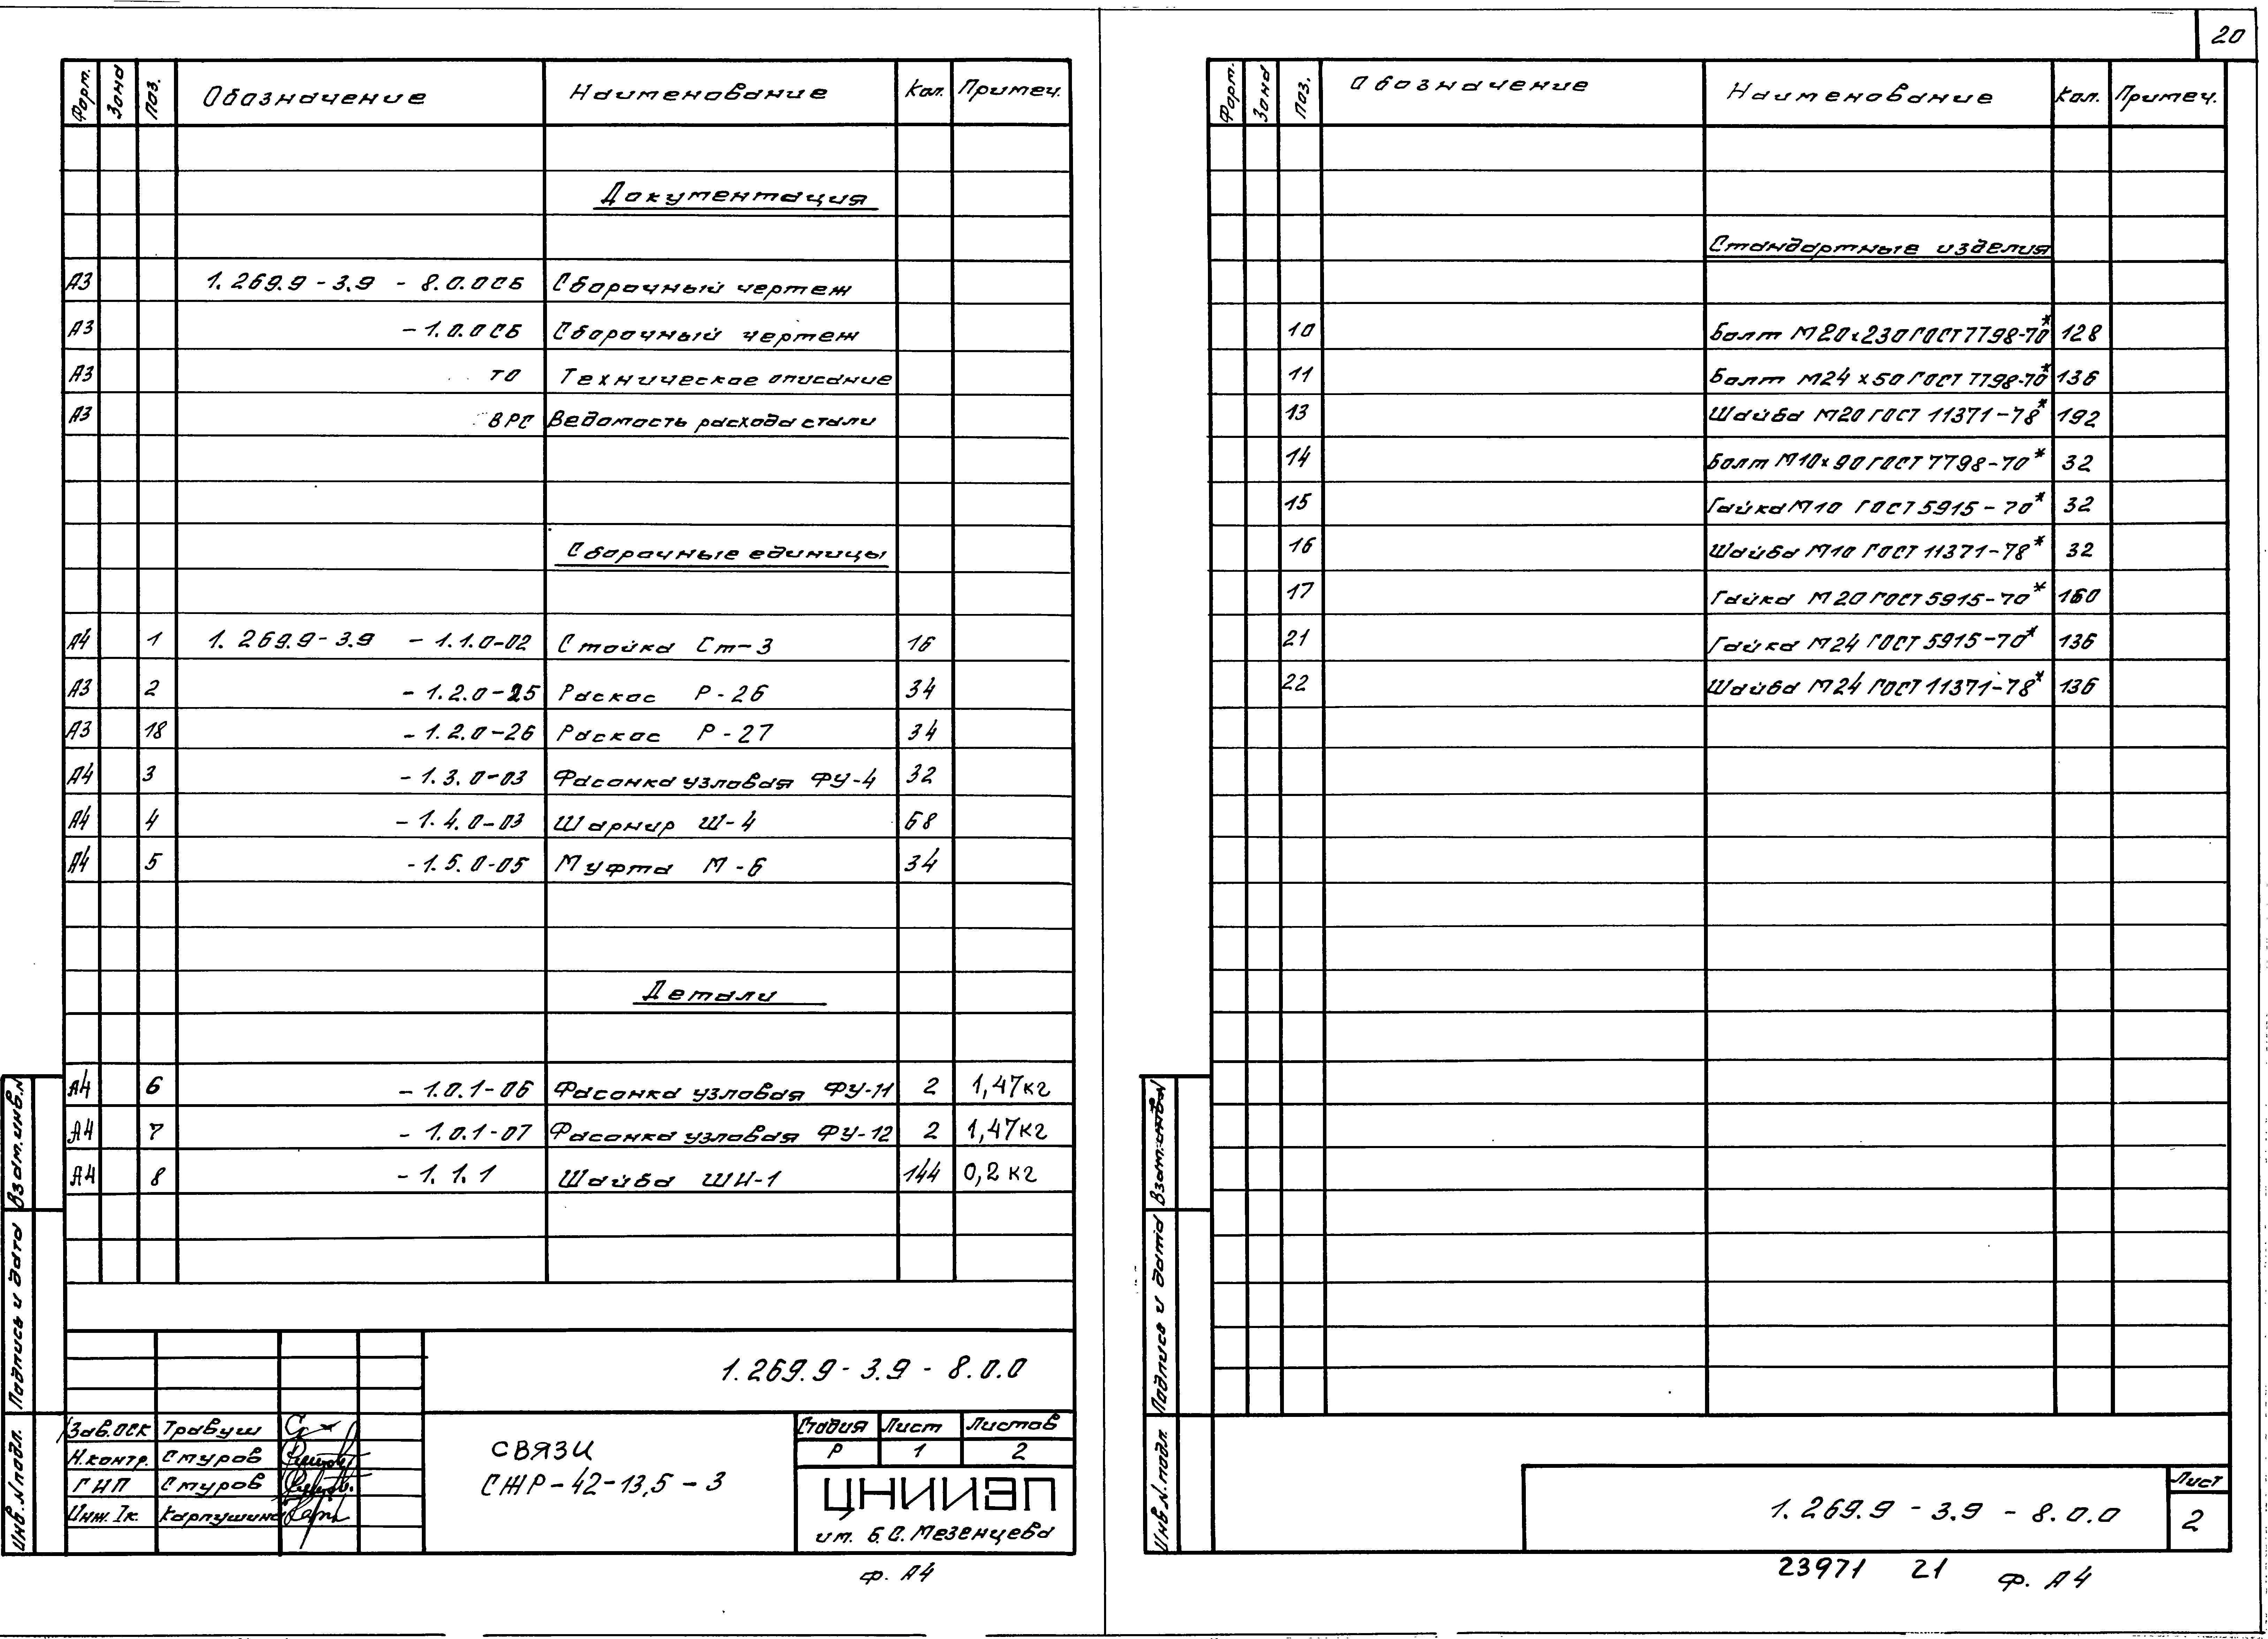 20
Форм. Зона Поз. Обозначение Наименование Кол. Примеч.
Документация
А3 1.269.9-3.9 - 8.0.0СБ Сборочный чертеж
А3 -1.0.0СБ Сборочный чертеж
А3 ТО Техническое описание
А3 ВРС Ведомость расхода стали
Сборочные единицы
А4 1 1.269.9-3.9 -1.1.0-02 Стойка Ст-3 16
А3 2 -1.2.0-25 Раскос Р-26 34
А3 18 -1.2.0-26 Раскос Р-27 34
А4 3 -1.3.0-03 Фасонка узловая ФУ-4 32
А4 4 -1.4.0-03 Шарнир Ш-4 68
А4 5 -1.5.0-05 Муфта М-6 34
Детали
А4 6 -1.0.1-06 Фасонка узловая ФУ-11 2 1,47кг
А4 7 -1.0.1-07 Фасонка узловая ФУ-12 2 1,47кг
А4 8 -1.1.1 Шайба ШИ-1 144 0,2 кг
Взам.инв.N
Подпись и дата
Инв.N подл.
1.269.9-3.9-8.0.0
Зав.ОСК Травуш
Н.контр. Стуров
ГИП Стуров
Инж. Iк. Карпушина
СВЯЗИ
СЖР-42-13,5-3
Стадия Лист Листов
Р 1 2
ЦНИИЭП
им. Б.С. Мезенцева
Ф. А4
Форм. Зона Поз. Обозначение Наименование Кол. Примеч.
Стандартные изделия
10 Болт М20х230 ГОСТ 7798-70* 128
11 Болт М24х50 ГОСТ 7798-70* 136
13 Шайба М20 ГОСТ 11371-78* 192
14 Болт М10х90 ГОСТ 7798-70* 32
15 Гайка М10 ГОСТ 5915-70* 32
16 Шайба М10 ГОСТ 11371-78* 32
17 Гайка М20 ГОСТ 5915-70* 160
21 Гайка М24 ГОСТ 5915-70* 136
22 Шайба М24 ГОСТ 11371-78* 136
Взам.инв.N
Подпись и дата
Инв.N подл.
1.269.9-3.9-8.0.0
Лист
2
23971 21 Ф. А4